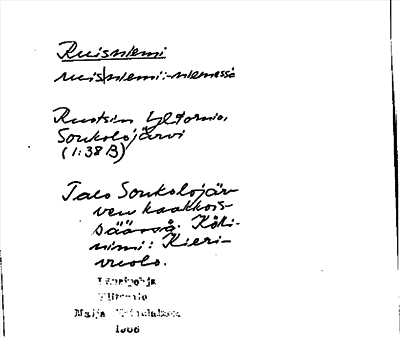 Ruisniemi
ruis|niemi: -niemessä
Ruotsin Ylitornio,
Soukolojärvi
(1:38 B)
Talo Soukolojär-
ven kaakkois-
päässä. Köki-
nimi: Kieri-
vuolo.
Länsipohja
Ylitornio
Maija
1966